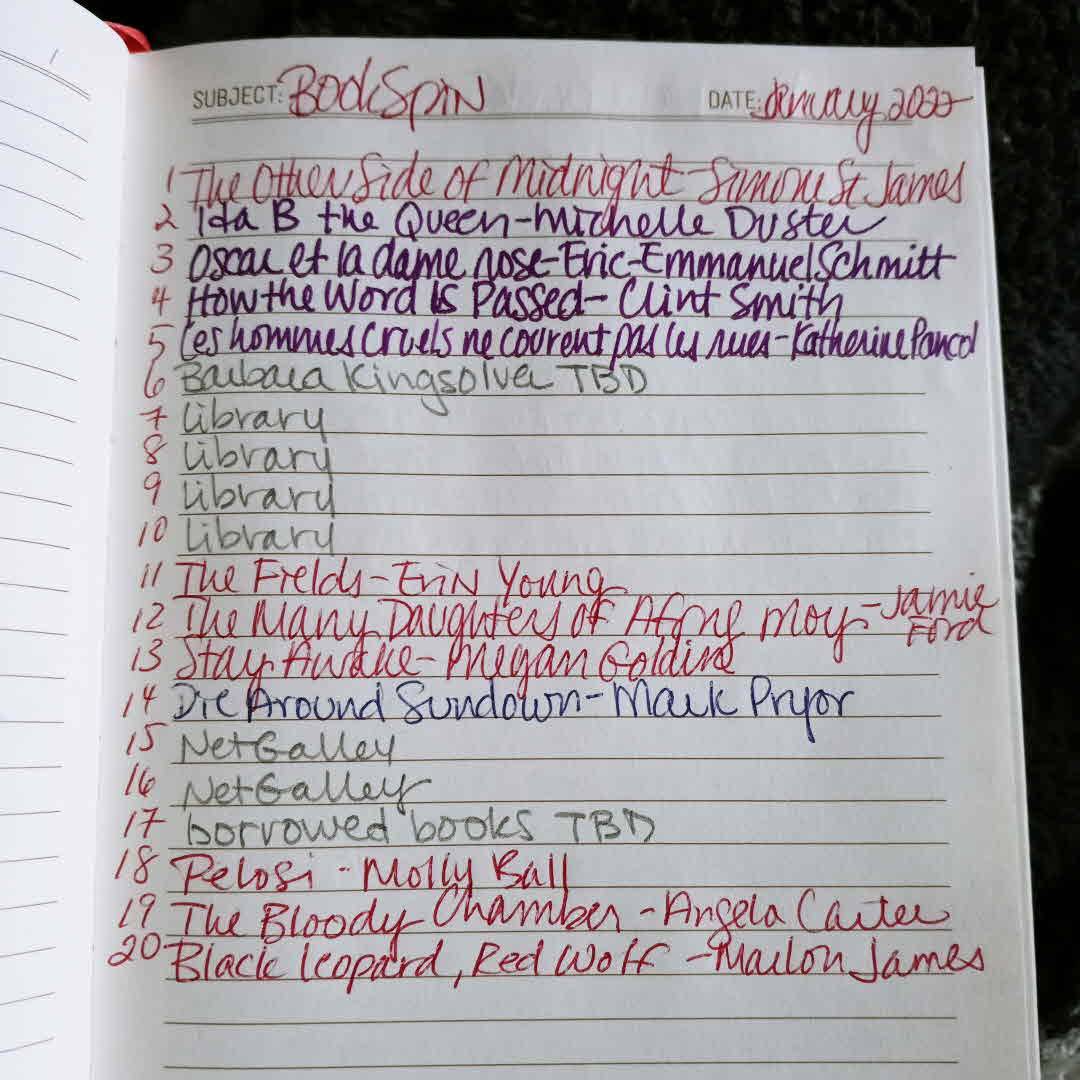 SUBJECT: BookSpin DATE: January 2022
1 The Other Side of Midnight - Simone St. James
2 Ida B the Queen - Michelle Duster
3 Oscar et la dame rose - Eric-Emmanuel Schmitt
4 How the Word Is Passed - Clint Smith
5 Les hommes cruels ne courent pas les rues - Katherine Pancol
6 Barbara Kingsolver TBD
7 library
8 library
9 library
10 library
11 The Fields - Erin Young
12 The Many Daughters of Afong Moy - Jamie
Ford
13 Stay Awake - Megan Goldin
14 Die Around Sundown - Mark Pryor
15 NetGalley
16 NetGalley
17 borrowed books TBD
18 Pelosi - Molly Ball
19 The Bloody Chamber - Angela Carter
20 Black Leopard, Red Wolf - Marlon James